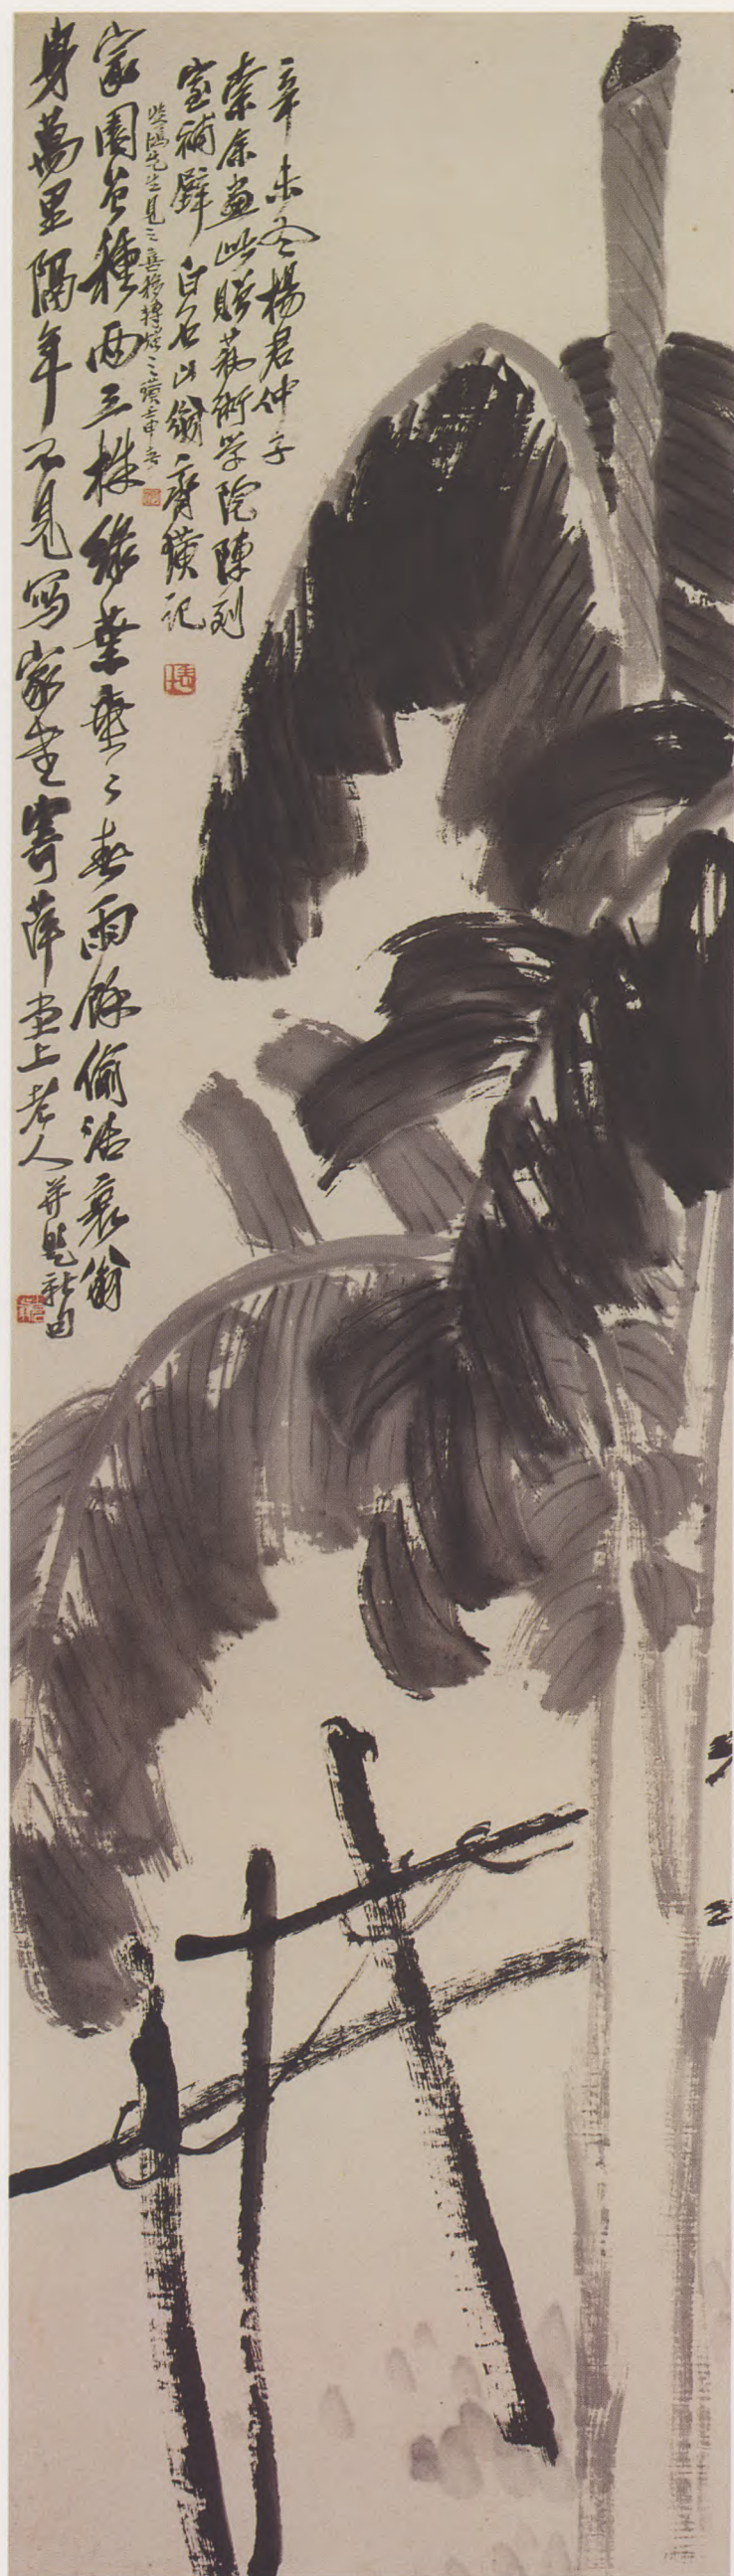 辛未冬楊君仲子
索余畫此贈藝術学院陳列
室補壁白石山翁齊璜記
悲鴻先生見之喜移轉之璜壬申
家園曾種兩三株綠葉垂々春雨餘偷活衰翁
身萬里隔年不見寫家書寄萍堂上老人并題新句